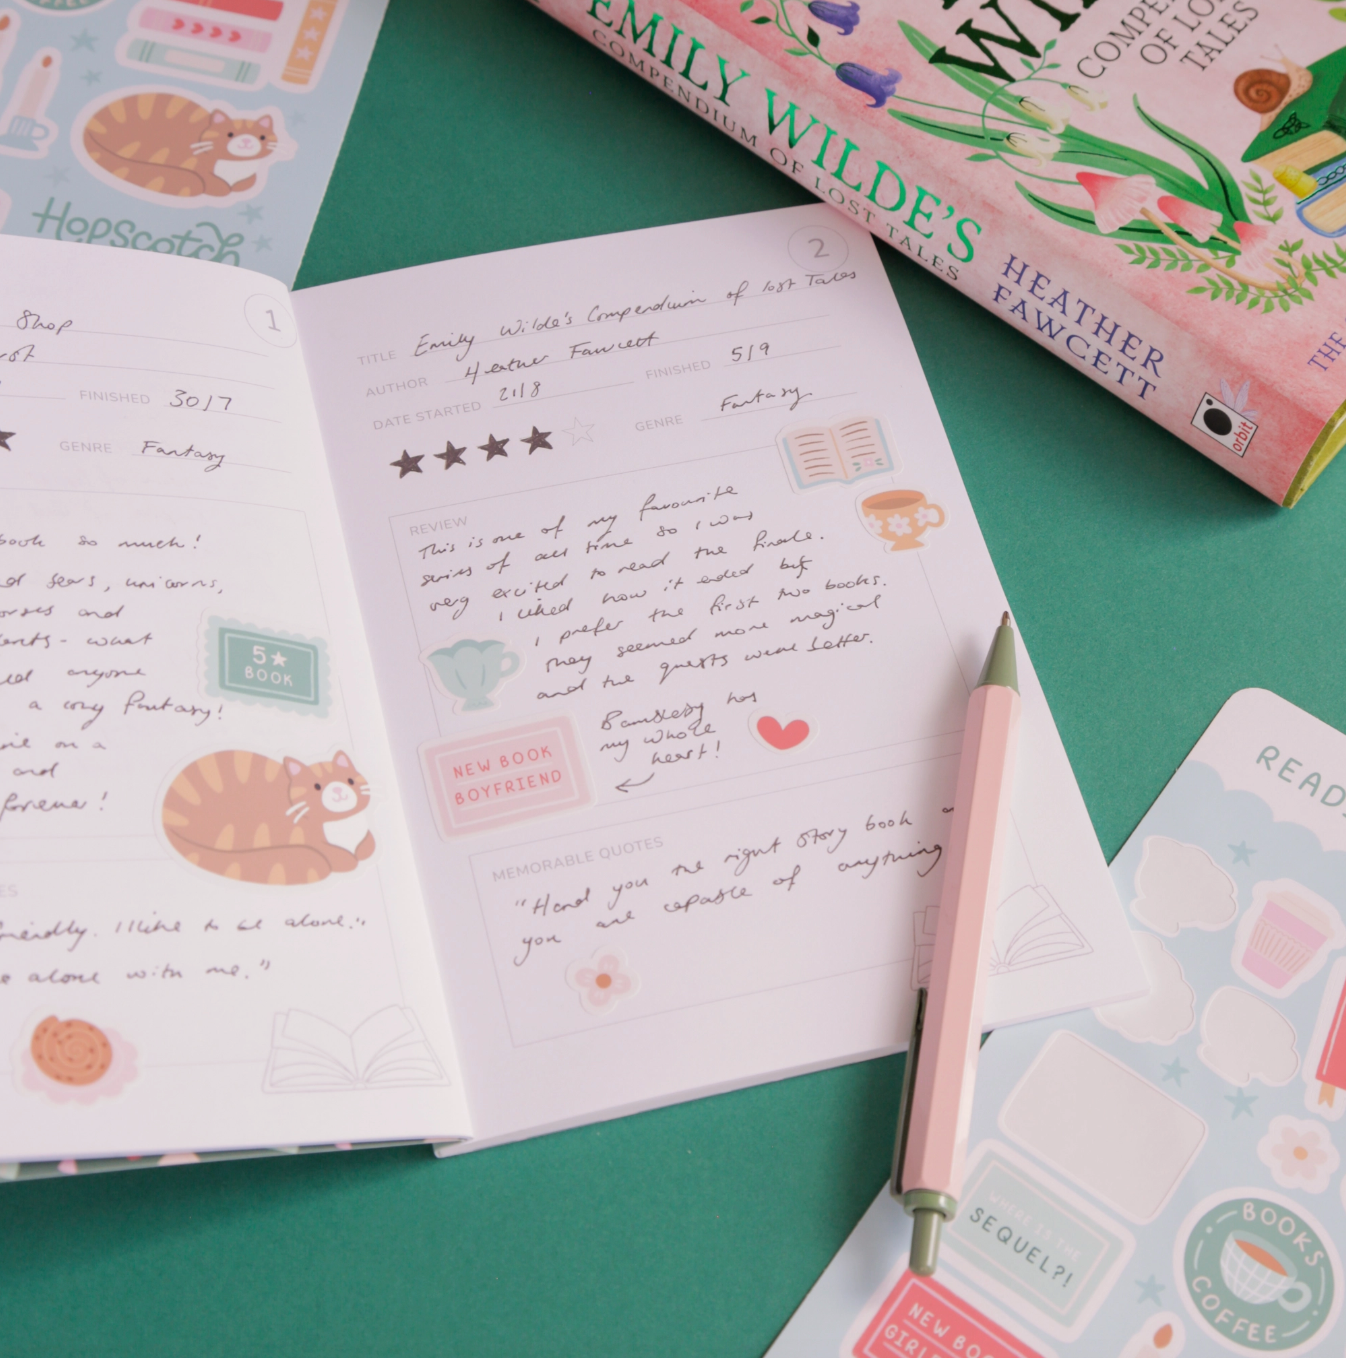 Hopscotch
EMILY WILDE'S
COMPENDIUM OF LOST TALES
HEATHER
FAWCETT
orbit
THE
COMPE
OF LO
TALES
1
Shop
FINISHED 30/7
GENRE Fantasy
book so much!
unicorns,
and
what
anyone
a cosy fantasy!
on a
and
forever!
5★
BOOK
friendly. I like to be alone."
alone with me."
2
TITLE Emily Wilde's Compendium of lost Tales
AUTHOR Heather Fawcett
DATE STARTED 21/8 FINISHED 5/9
GENRE Fantasy
REVIEW
This is one of my favourite
series of all time so I was
very excited to read the finale.
I liked how it ended but
I prefer the first two books.
They seemed more magical
and the quests were better.
Bambleby has
my whole
heart!
NEW BOOK
BOYFRIEND
MEMORABLE QUOTES
"Hand you the right story book
you are capable of anything
READ
WHERE IS THE
SEQUEL?!
BOOKS
COFFEE
NEW BOO